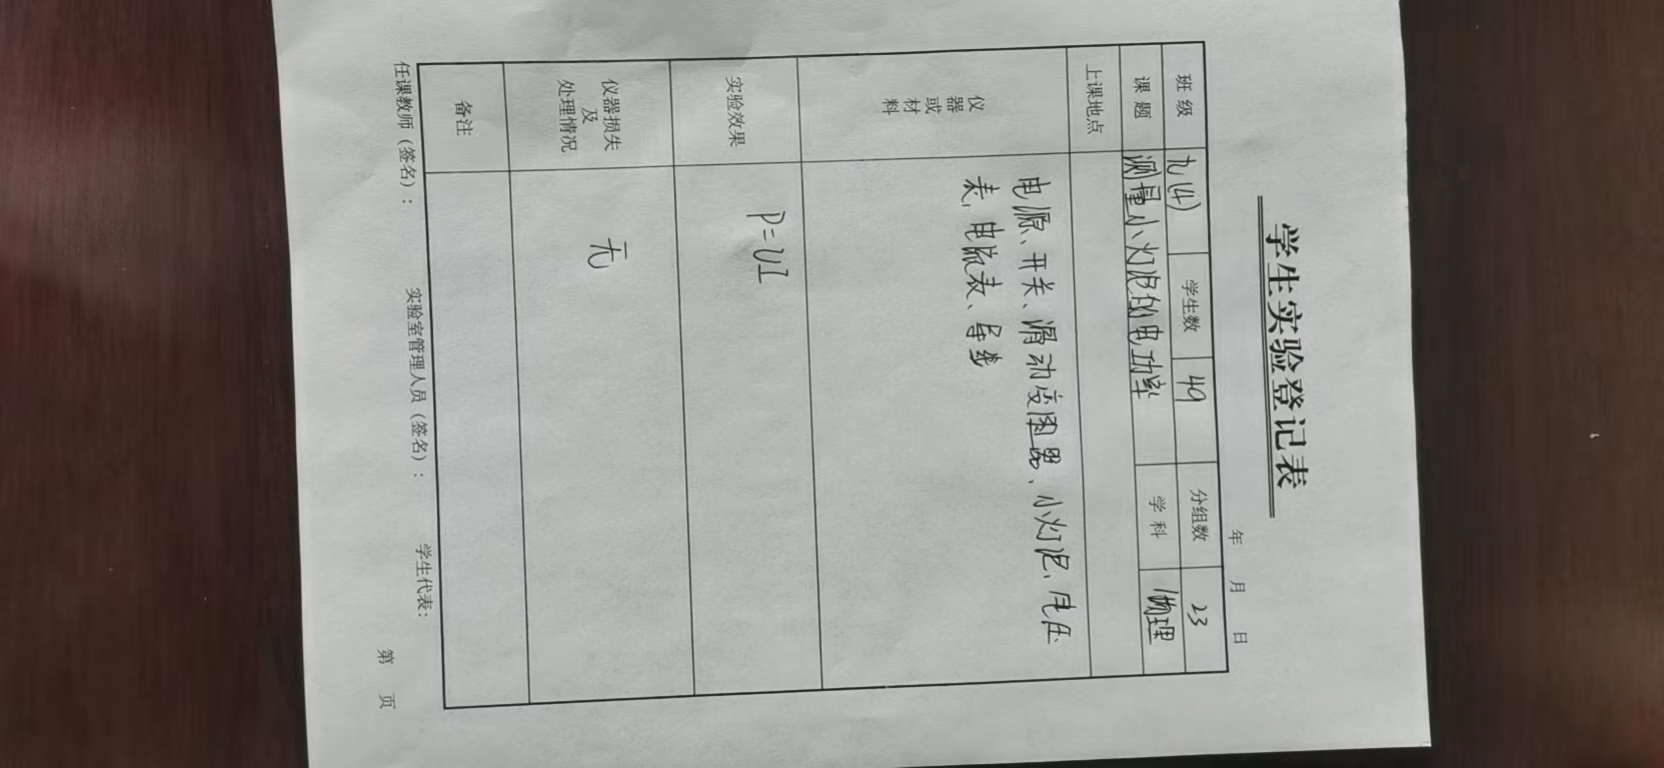 学生实验登记表
年 月 日
班级 九(4) 学生数 49 分组数 23
课题 测量小灯泡的电功率 学科 物理
上课地点
仪器或材料
电源、开关、滑动变阻器、小灯泡、电压
表、电流表、导线
实验效果 P=UI
仪器损失及处理情况 无
备注
任课教师（签名）： 实验室管理人员（签名）： 学生代表：
第 页